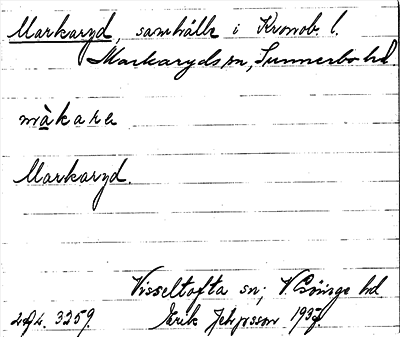 Markaryd, samhälle i Kronob. l.
Markaryds sn, Sunnerbo hd.
màkare
Markaryd.
Visseltofta sn; V Göinge hd
3259. Erik Jeppsson 1937.